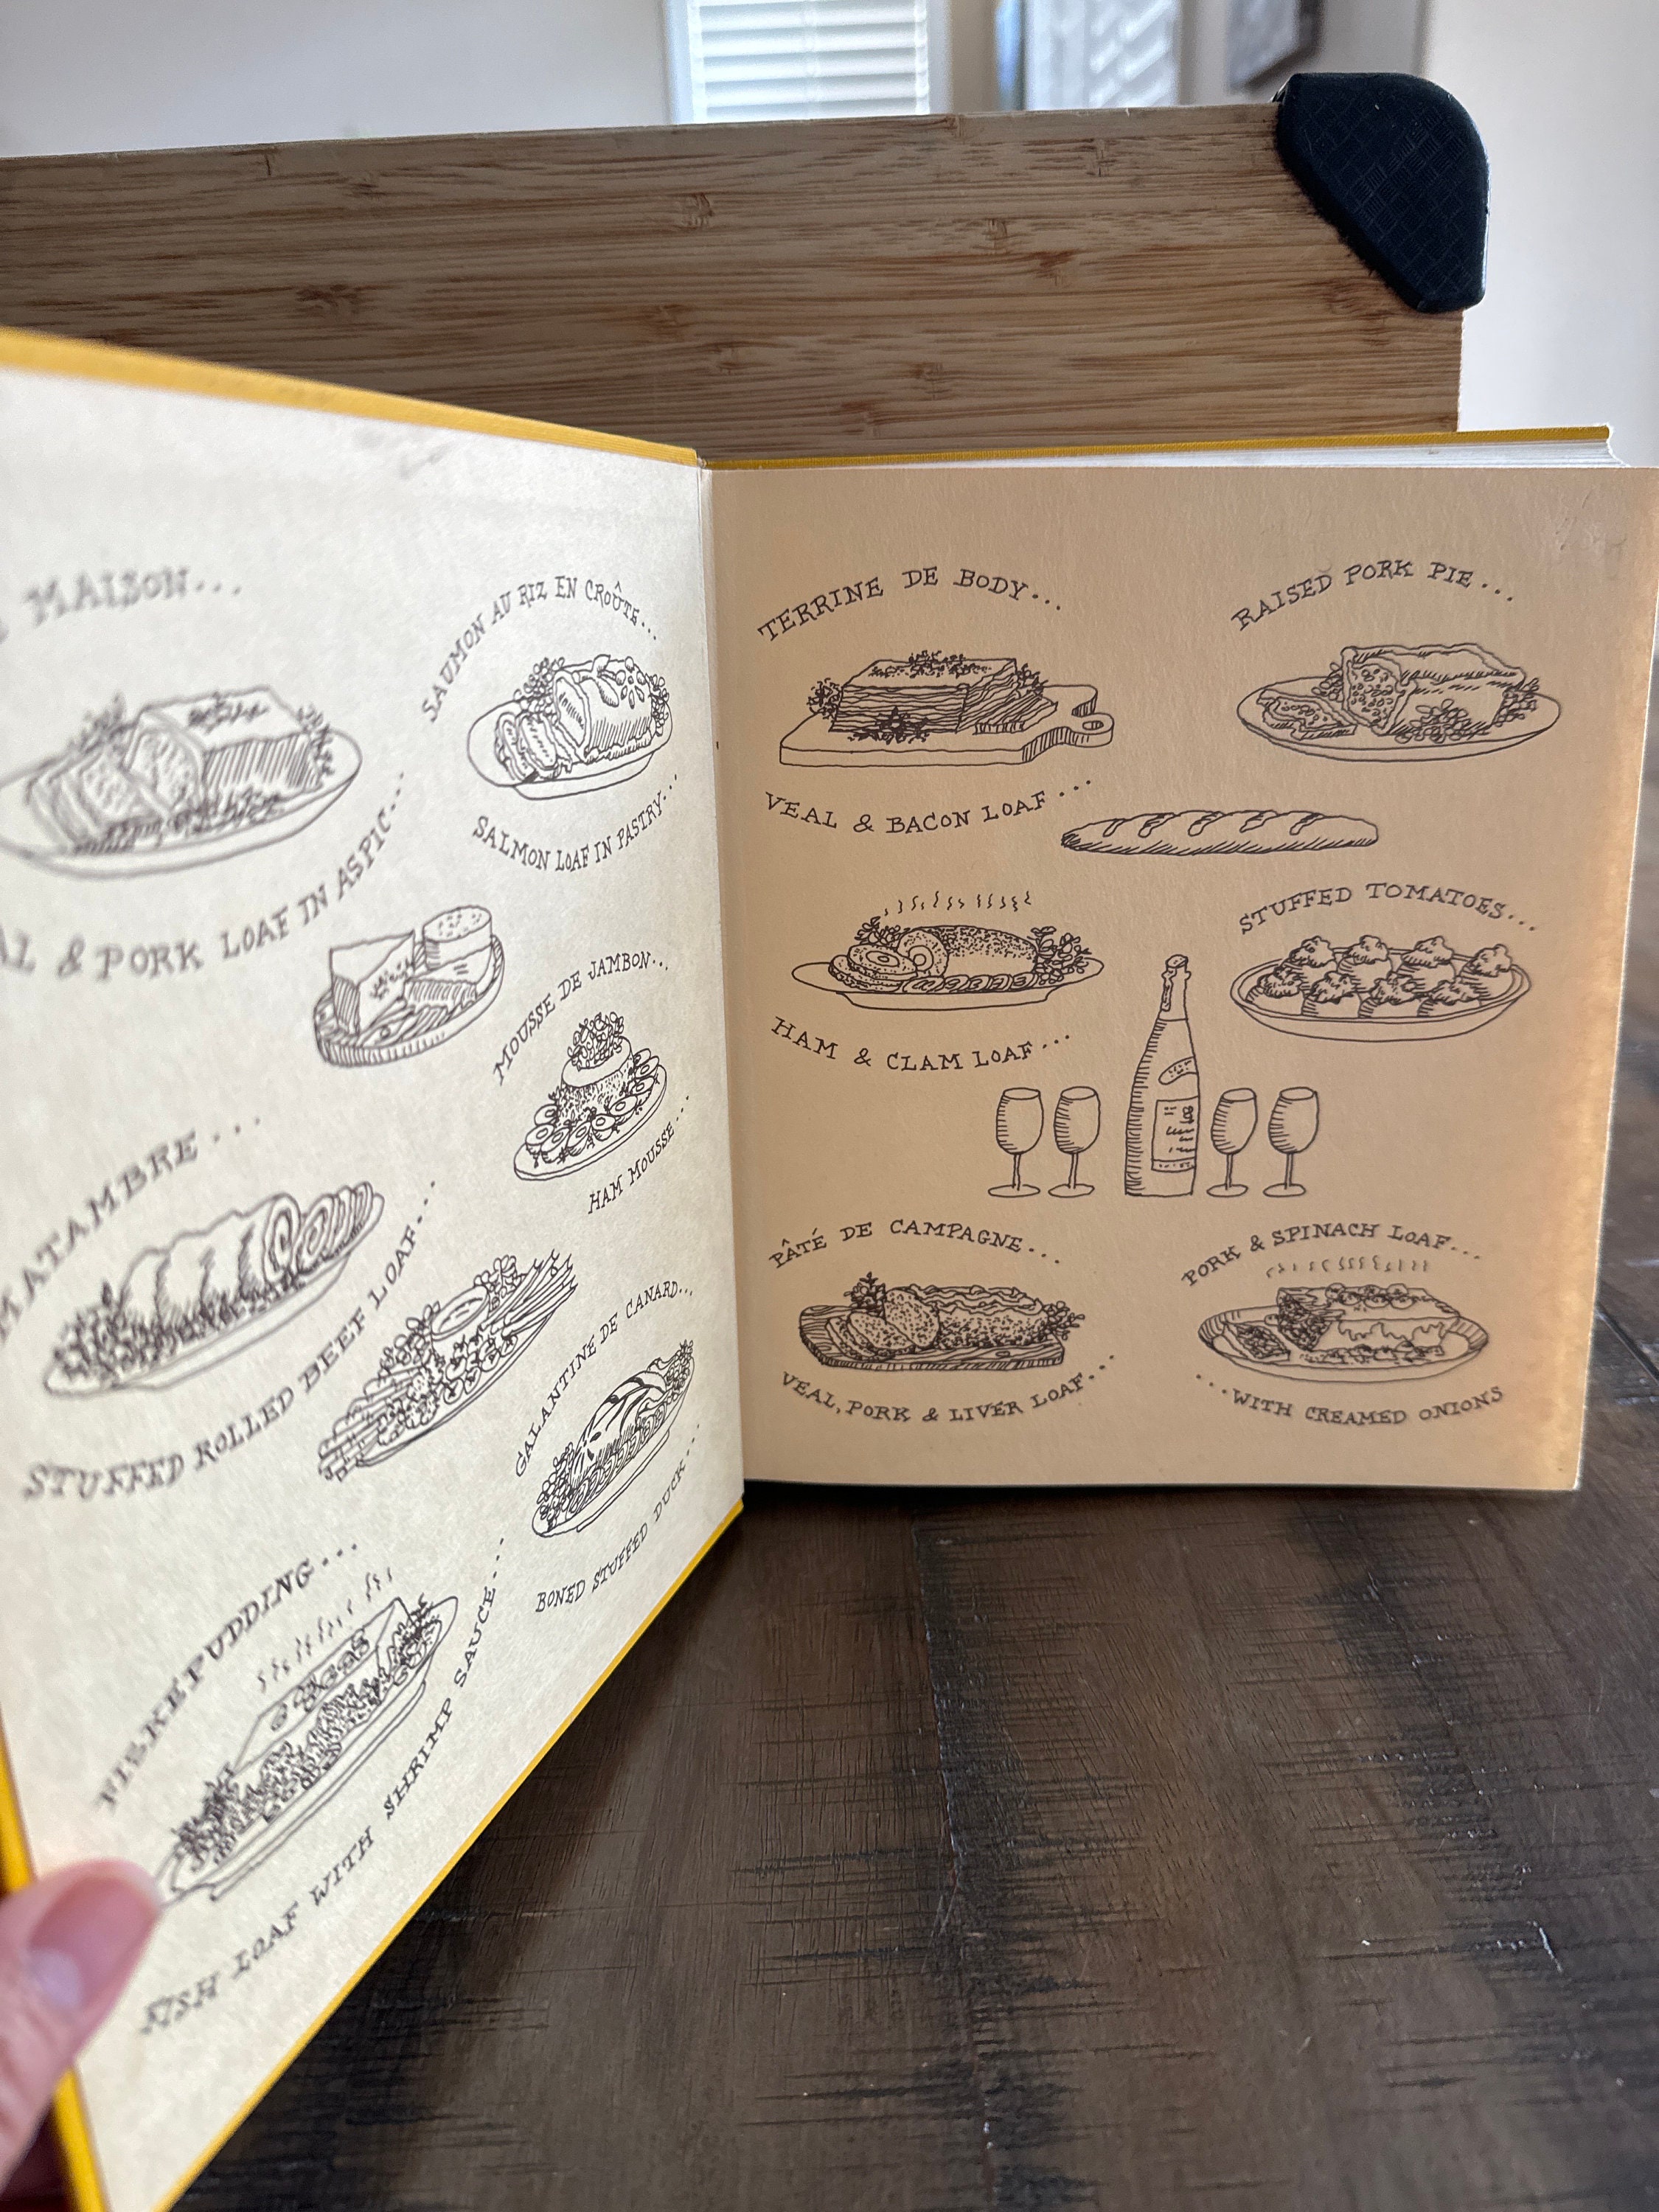 MAISON...
& PORK LOAF IN ASPIC...
SAUMON AU RIZ EN CROÛTE...
SALMON LOAF IN PASTRY...
MOUSSE DE JAMBON...
HAM MOUSSE...
MATAMBRE...
STUFFED ROLLED BEEF LOAF...
GALANTINE DE CANARD...
BONED STUFFED DUCK...
FISKEPUDDING...
FISH LOAF WITH SHRIMP SAUCE...
TERRINE DE BODY...
VEAL & BACON LOAF...
RAISED PORK PIE...
HAM & CLAM LOAF...
STUFFED TOMATOES...
PÂTÉ DE CAMPAGNE...
VEAL, PORK & LIVER LOAF...
PORK & SPINACH LOAF...
...WITH CREAMED ONIONS